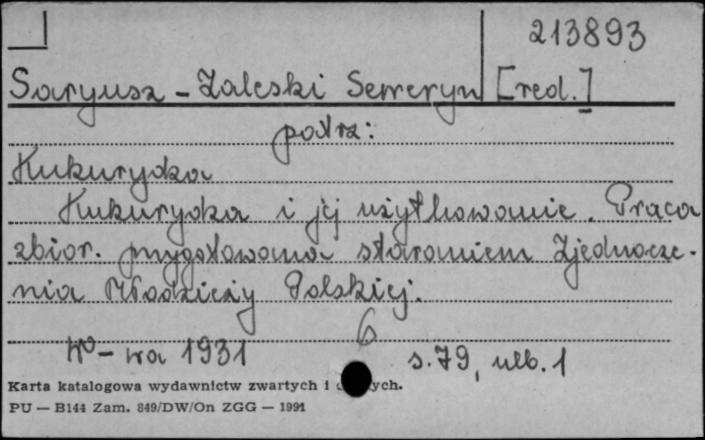 213893
Saryusz-Zaleski Seweryn [red.]
patrz:
Kukurydza
Kukurydza i jej użytkowanie. Praca
zbior. przygotowana staraniem Zjednocze-
nia Młodzieży Polskiej.
6
W-wa 1931 s. 79, nlb. 1
Karta katalogowa wydawnictw zwartych i
PU — B144 Zam. 849/DW/On ZGG — 1991